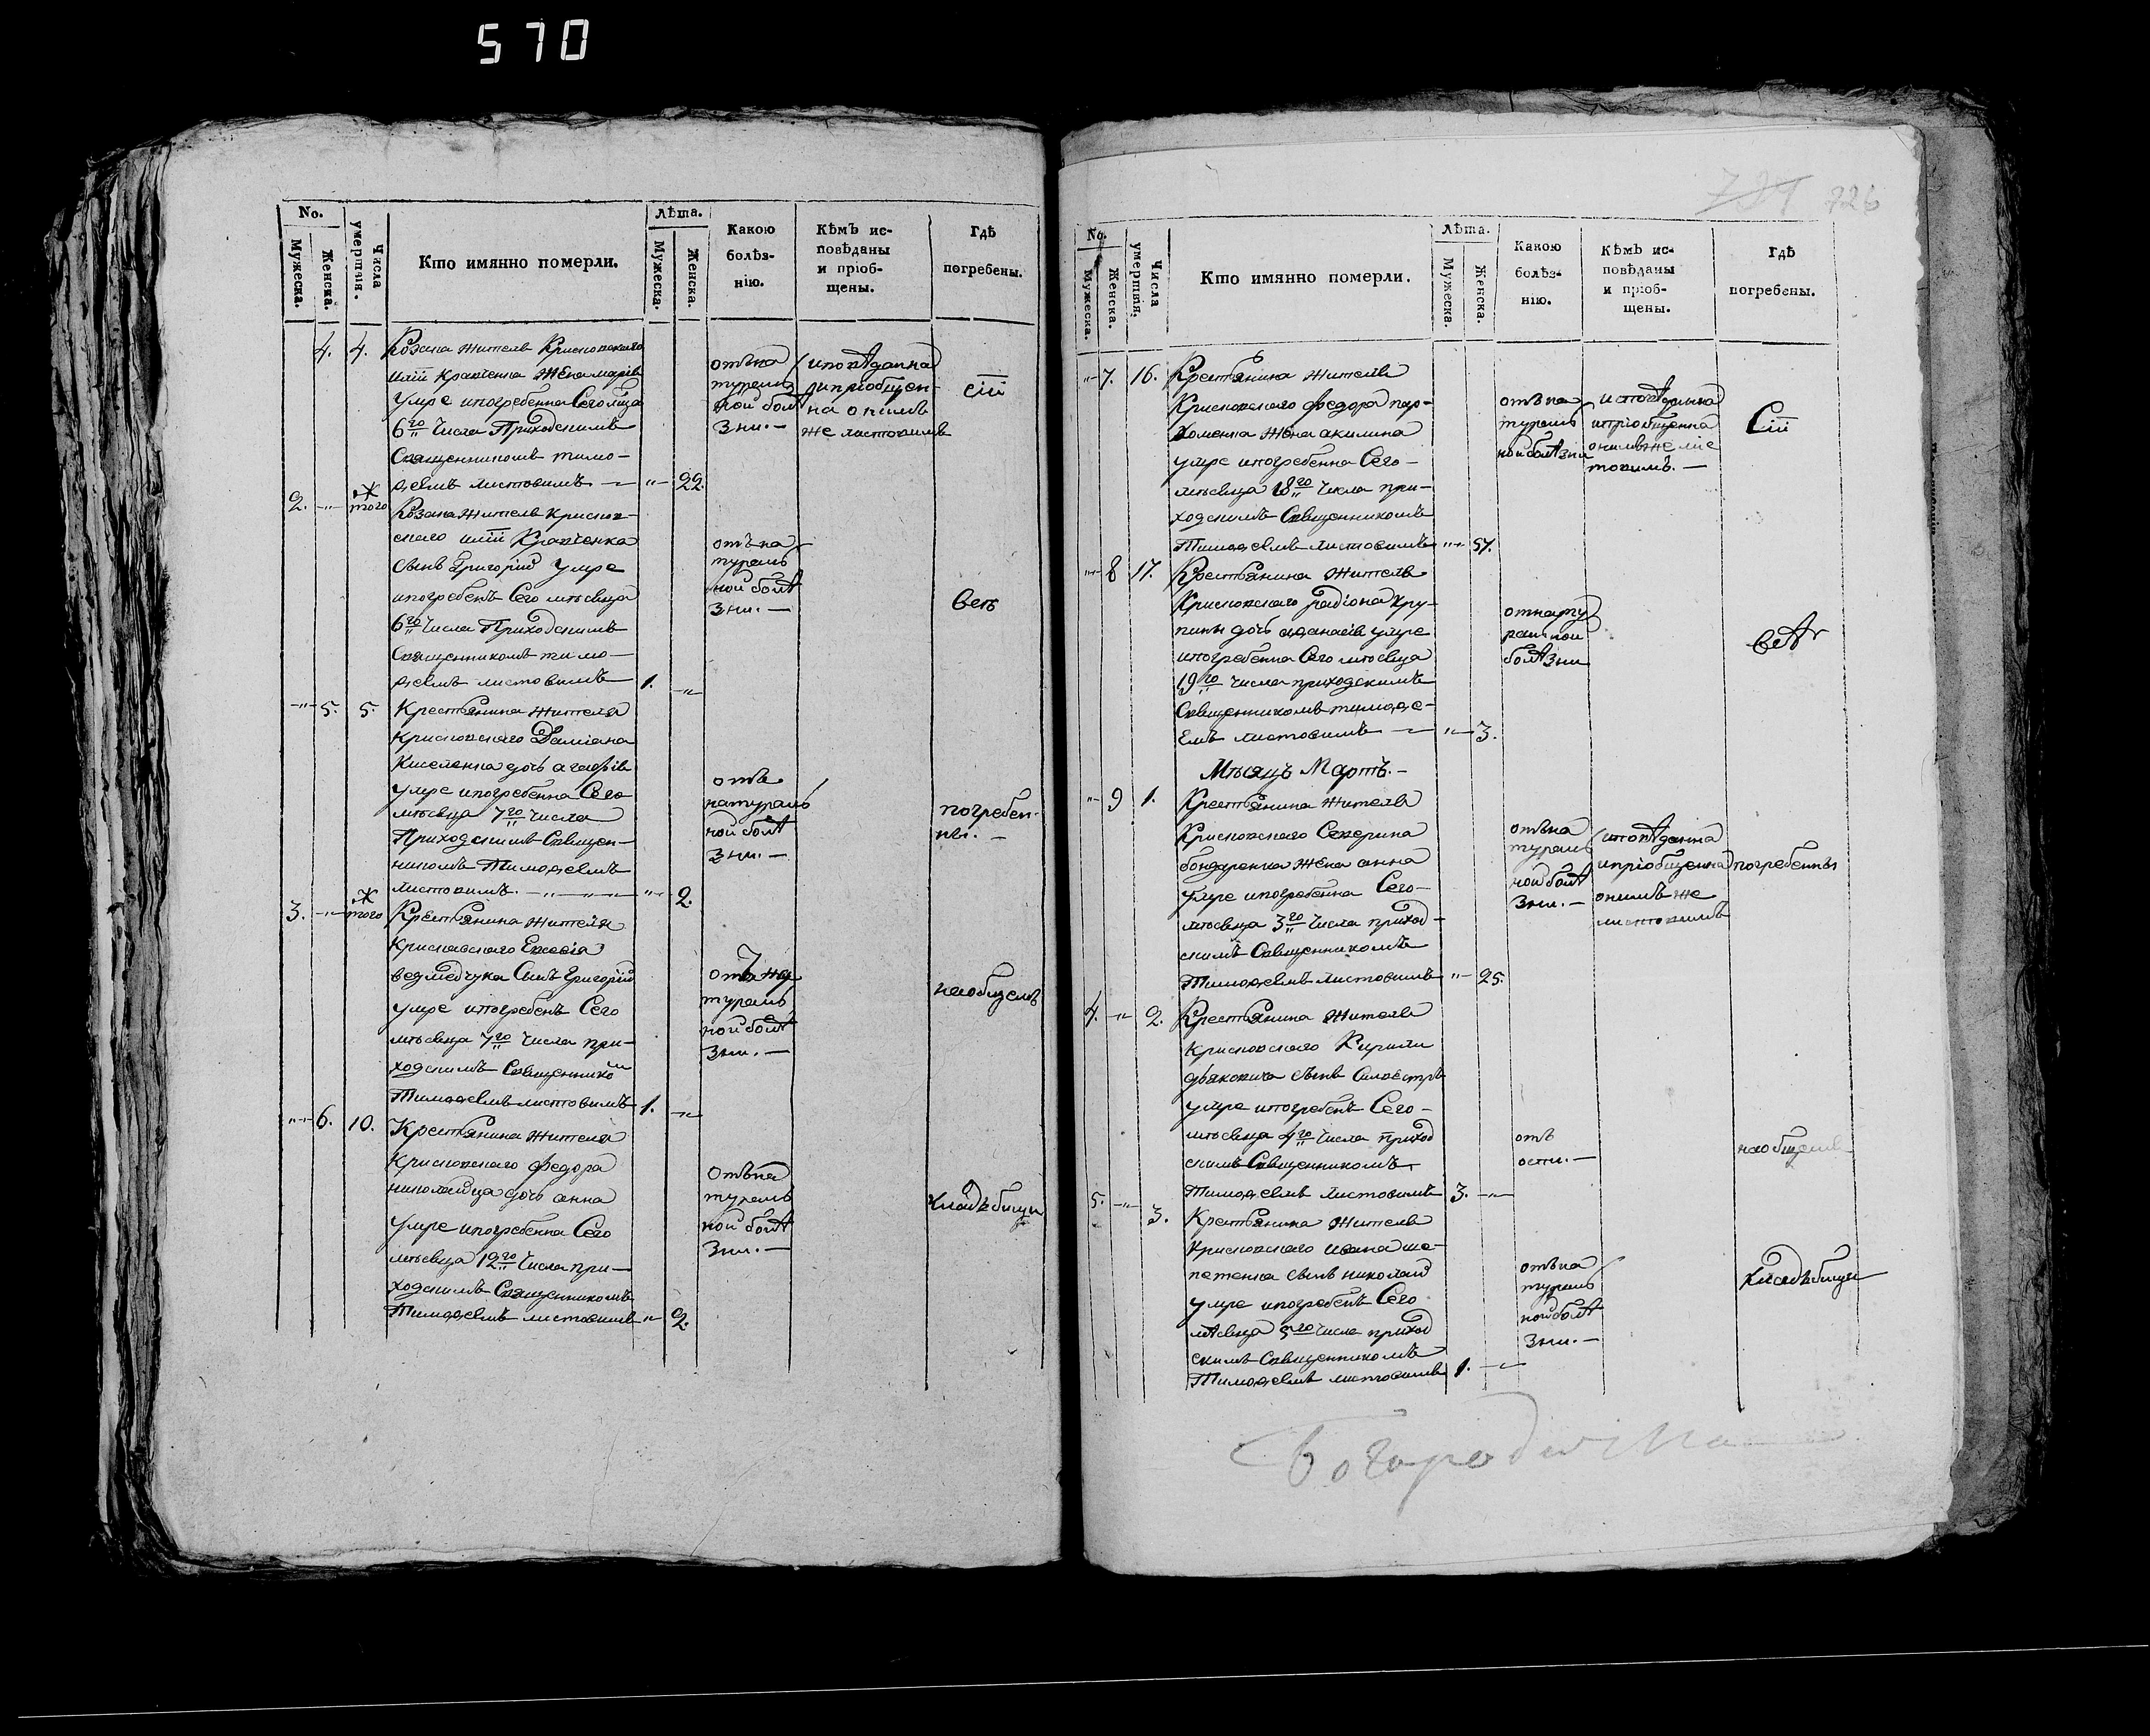 570
No.
Мужеска.
Женска.
Числа умертвія.
Кто имянно померли.
Лѣта.
Мужеска.
Женска.
Какою болѣз-
нію.
Кѣмъ ис-
повѣданы
и пріоб-
щены.
Гдѣ
погребены.
4. 4. Козака жителя
Кравченка жена марія
умре и погребенна Сего мца
6го числа Приходскимъ
Священникомъ тимо-
ѳеемъ листовимъ — „ 22.
отъ на
тураль
ной болѣ
зни. —
исповѣданна
и пріобщен-
на онимъ
же листовимъ
сіи
2. — того Козака жителя криснов-
ского иліи Кравченка
сынъ Григорій умре
и погребенъ Сего мѣсяца
6го числа Приходскимъ
Священникомъ тимо-
ѳеемъ листовимъ 1. — „
отъ на
тураль
ной болѣ
зни. —
всѣ
„ 5. 5. Крестьянина жителя
крисновского Даміана
Киселенка дочь агафія
умре и погребенна Сего
мѣсяца 7го числа
Приходскимъ Священ-
никомъ Тимоѳеемъ
листовимъ. — „ — „ 2.
отъ
натураль
ной болѣ
зни. —
погребен-
ны. —
3. — того Крестьянина жителя
крисновского
ведмедчука Синъ Григорій
умре и погребенъ Сего
мѣсяца 7го числа при-
ходскимъ Священником
Тимоѳеемъ листовимъ 1. — „
отъ на
тураль
ной болѣ
зни. —
наобщемъ
„ 6. 10. Крестьянина жителя
Крисновского федора
николайца дочь анна
умре и погребенна Сего
мѣсяца 12го числа при-
ходскимъ Священникомъ
Тимоѳеемъ листовимъ „ 2.
отъ на
тураль
ной болѣ
зни. —
кладъбищи
726
No.
Мужеска.
Женска.
Числа умертвія.
Кто имянно померли.
Лѣта.
Мужеска.
Женска.
Какою
болѣз-
нію.
Кѣмъ ис-
повѣданы
и пріоб-
щены.
Гдѣ
погребены.
„ 7. 16. Крестьянина жителя
Крисновского федора пар-
хоменка жена акилина
умре и погребенна Сего —
мѣсяца 18го числа при-
ходскимъ Священникомъ
Тимоѳеемъ листовимъ „ 57.
отъ на
тураль
ной болѣзни
исповѣданна
и пріобщенна
онимъ же лис
товимъ. —
Сіи
„ 8 17. Крестьянина жителя
Крисновского радіона Кру-
дочь аѳанасія умре
и погребенна Сего мѣсяца
19го числа приходскимъ
Священникомъ тимоѳе-
емъ листовимъ — „ 3.
от нату
ральной
болѣзни
всѣ
Мѣсяцъ Мартъ. —
„ 9 1. Крестьянина жителя
Крисновского Северина
бондаренка жена анна
умре и погребенна Сего —
мѣсяца 3го числа приход-
скимъ Священникомъ
Тимоѳеемъ листовимъ „ 25.
отъ на
тураль
ной болѣ
зни. —
исповѣданна
и пріобщенна
онимъ же
листовимъ
погребенны
4. — „ 2. Крестьянина жителя
крисновского Кирила
дьяковича сынъ Силвестръ
умре и погребенъ Сего —
мѣсяца 4го числа приход
скимъ Священникомъ
Тимоѳеемъ листовимъ 3. — „
отъ
оспи. —
наобщемъ
5. — „ 3. Крестьянина жителя
крисновского ивана ше-
петенка сынъ николай
умре и погребенъ Сего
мѣсяца 5го числа приход
скимъ Священникомъ
Тимоѳеемъ листовимъ 1. — „
отъ на
тураль
ной болѣ
зни. —
кладъбищи